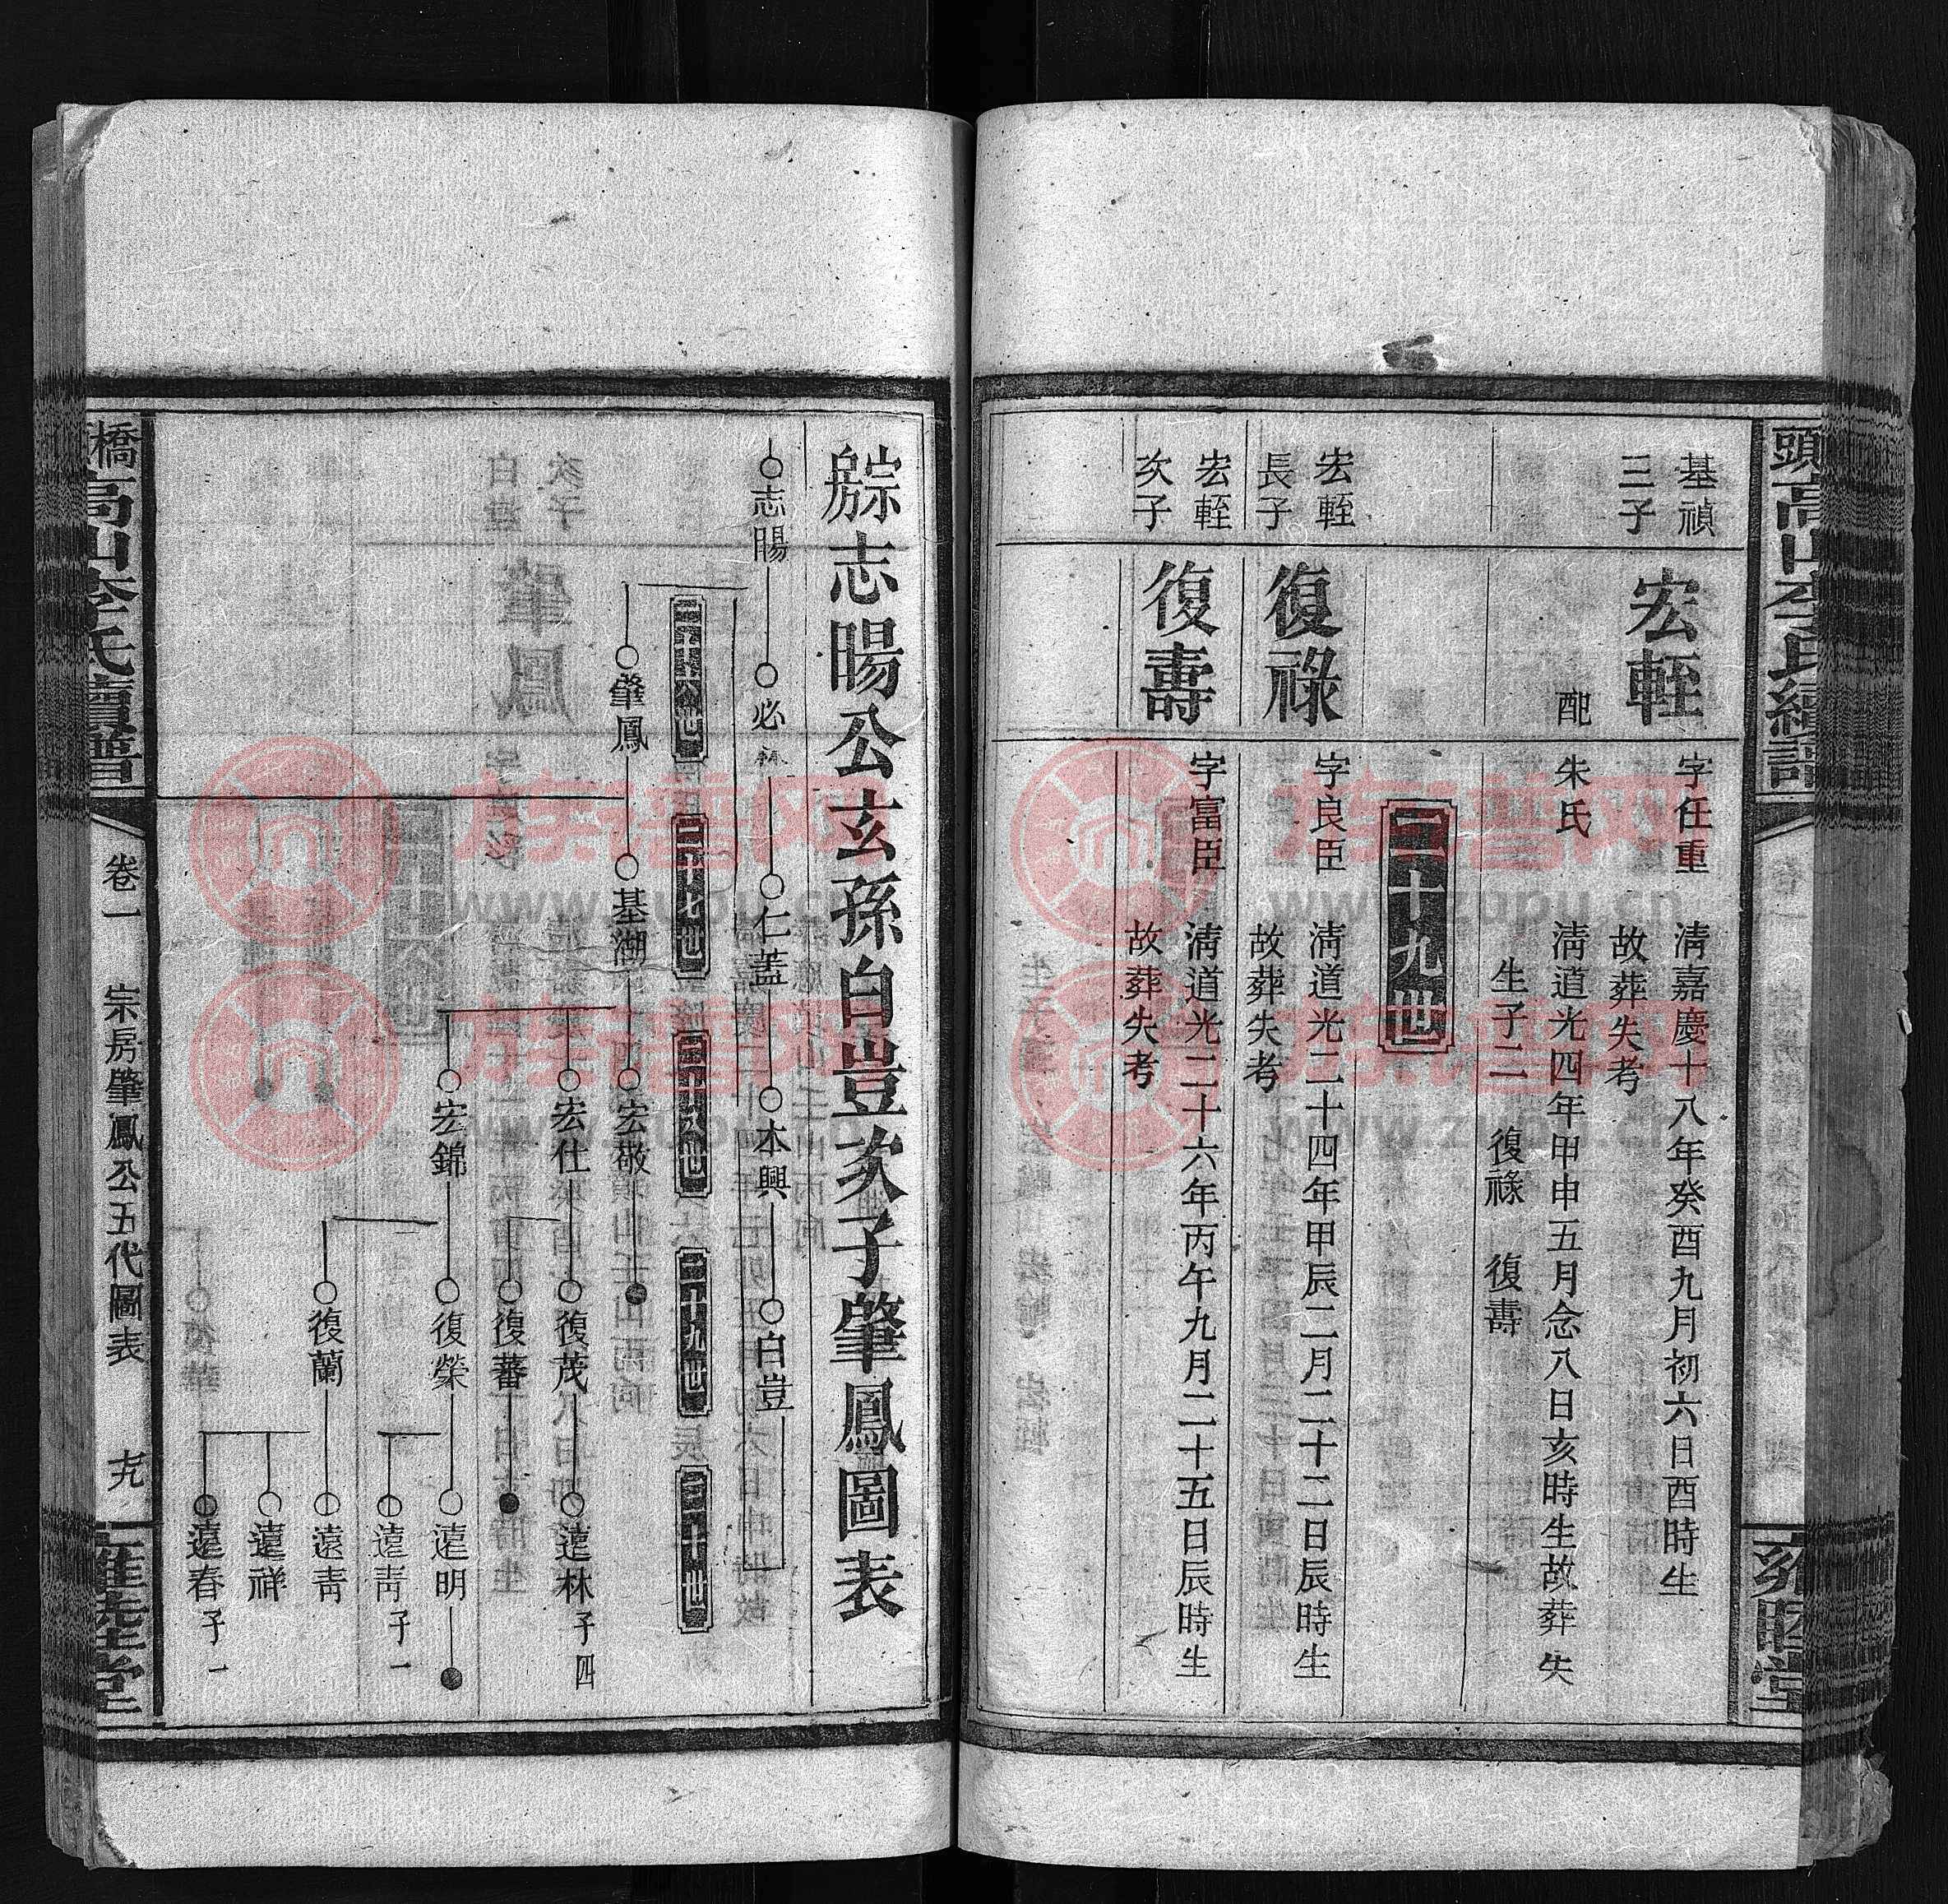 頭高山李氏續譜
雍睦堂
基禎
三子
宏輊
字任重
清嘉慶十八年癸酉九月初六日酉時生
故葬失考
配
朱氏
清道光四年甲申五月念八日亥時生故葬失
生子二 復祿 復壽
二十九世
宏輊
長子
復祿
字良臣
清道光二十四年甲辰二月二十二日辰時生
故葬失考
宏輊
次子
復壽
字富臣
清道光二十六年丙午九月二十五日辰時生
故葬失考
志暘公玄孫白豈次子肇鳳圖表
志暘
必
仁蓋
本興
白豈
二十六世
二十七世
二十八世
二十九世
三十世
肇鳳
基湖
宏敬
宏仕
復茂
遠林 子四
復蕃
宏錦
復榮
遠明
遠青 子一
復蘭
遠青
遠祥
遠春 子一
橋高山李氏續譜
卷一
宗房肇鳳公五代圖表
十九
雍睦堂
族谱网
www.zupu.cn
族谱网
www.zupu.cn
族谱网
www.zupu.cn
族谱网
www.zupu.cn